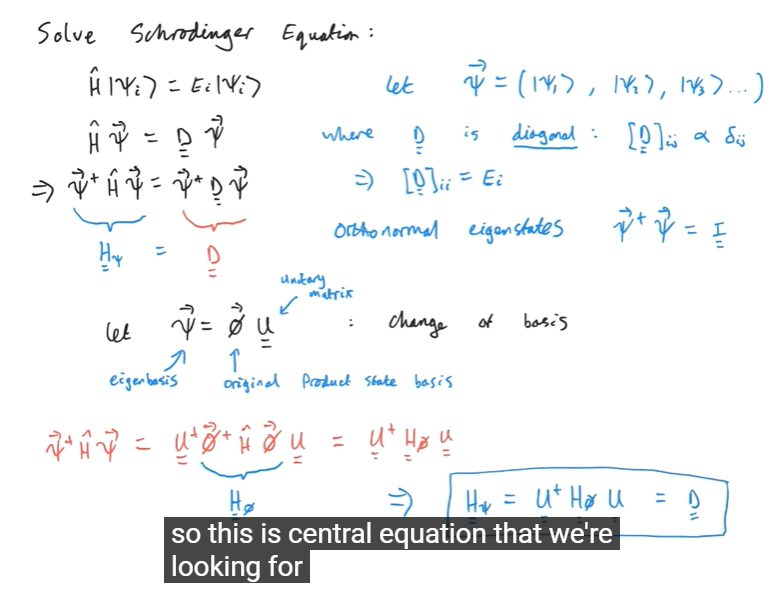 Solve Schrodinger Equation:
Ĥ|ψᵢ⟩ = Eᵢ|ψᵢ⟩ let ψ⃗ = (|ψ₁⟩, |ψ₂⟩, |ψ₃⟩...)
Ĥ ψ⃗ = D̳ ψ⃗ where D̳ is diagonal: [D̳]ᵢⱼ ∝ δᵢⱼ
⇒ ψ⃗⁺ Ĥ ψ⃗ = ψ⃗⁺ D̳ ψ⃗ ⇒ [D̳]ᵢᵢ = Eᵢ
H̳ψ = D̳ Orthonormal eigenstates ψ⃗⁺ ψ⃗ = I̳
unitary
matrix
let ψ⃗ = ø⃗ U̳ : change of basis
eigenbasis original Product state basis
ψ⃗⁺ Ĥ ψ⃗ = U̳⁺ ø⃗⁺ Ĥ ø⃗ U̳ = U̳⁺ H̳ø U̳
H̳ø ⇒ H̳ψ = U̳⁺ H̳ø U̳ = D̳
so this is central equation that we're
looking for